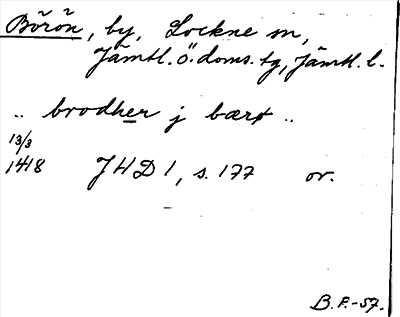 Börön, by, Lockne sn,
Jämtl. ö. doms. tg, Jämtl. l.
.. brodher j bærø ..
13/3
1418 JHD 1, s. 177 or.
B. F. -57.